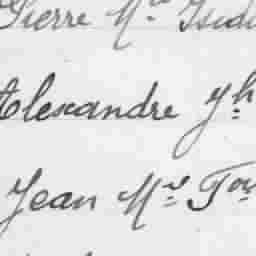 Pierre Me Isido
Alexandre yh
Jean Me Tou